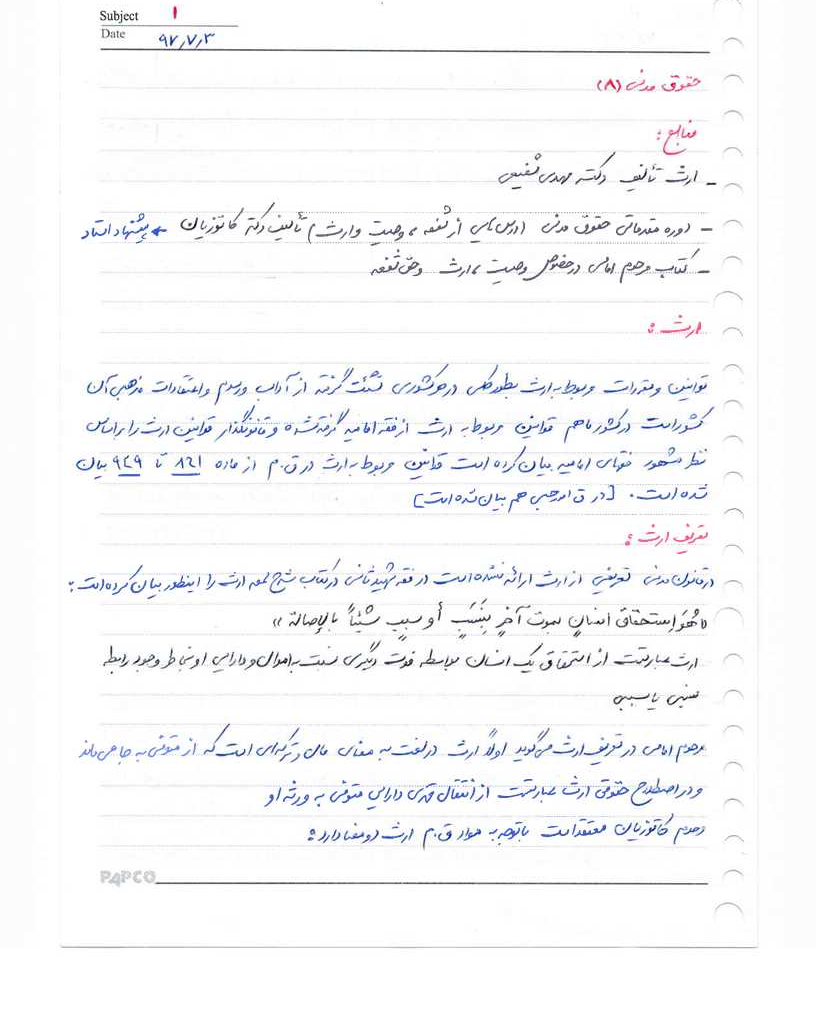 Subject ۱
Date ۹۷/۷/۳
حقوق مدنی (۸)
منابع :
- ارث تألیف دکتر مهدی شفیعی
- دوره مقدماتی حقوق مدنی (درس‌هایی از شفعه ، وصیت و ارث) تألیف دکتر کاتوزیان ← پیشنهاد استاد
- کتاب مرحوم امامی در خصوص وصیت ، ارث وحق شفعه
ارث :
قوانین و مقررات مربوط به ارث بطور کلی در هر کشوری نشئت گرفته از آداب و رسوم و اعتقادات مذهبی آن
کشور است در کشور ما هم قوانین مربوط به ارث از فقه امامیه گرفته شده و قانونگذار قوانین ارث را بر اساس
نظر مشهور فقهای امامیه بیان کرده است قوانین مربوط به ارث در ق.م از ماده ۸۶۱ تا ۹۴۹ بیان
شده است. [در ق امور حسبی هم بیان شده است]
تعریف ارث :
در قانون مدنی تعریفی از ارث ارائه نشده است در فقه شهید ثانی در کتاب شرح لمعه ارث را اینطور بیان کرده است :
«هُوَ اِستحقاق انسانٍ بموت آخرٍ بِنَسَبٍ أو سببٍ شیئاً بالإصالة»
ارث عبارتست از استحقاق یک انسان بواسطه فوت دیگری نسبت به اموال و دارایی او بخاطر وجود رابطه
نسبی یا سببی
مرحوم امامی در تعریف ارث می‌گوید اولاً ارث در لغت به معنای مال و ترکه‌ای است که از متوفی به جا می‌ماند
و در اصطلاح حقوقی ارث عبارتست از انتقال قهری دارایی متوفی به ورثه او
مرحوم کاتوزیان معتقد است باتوجه به مواد ق.م ارث دو معنا دارد :
PAPCO